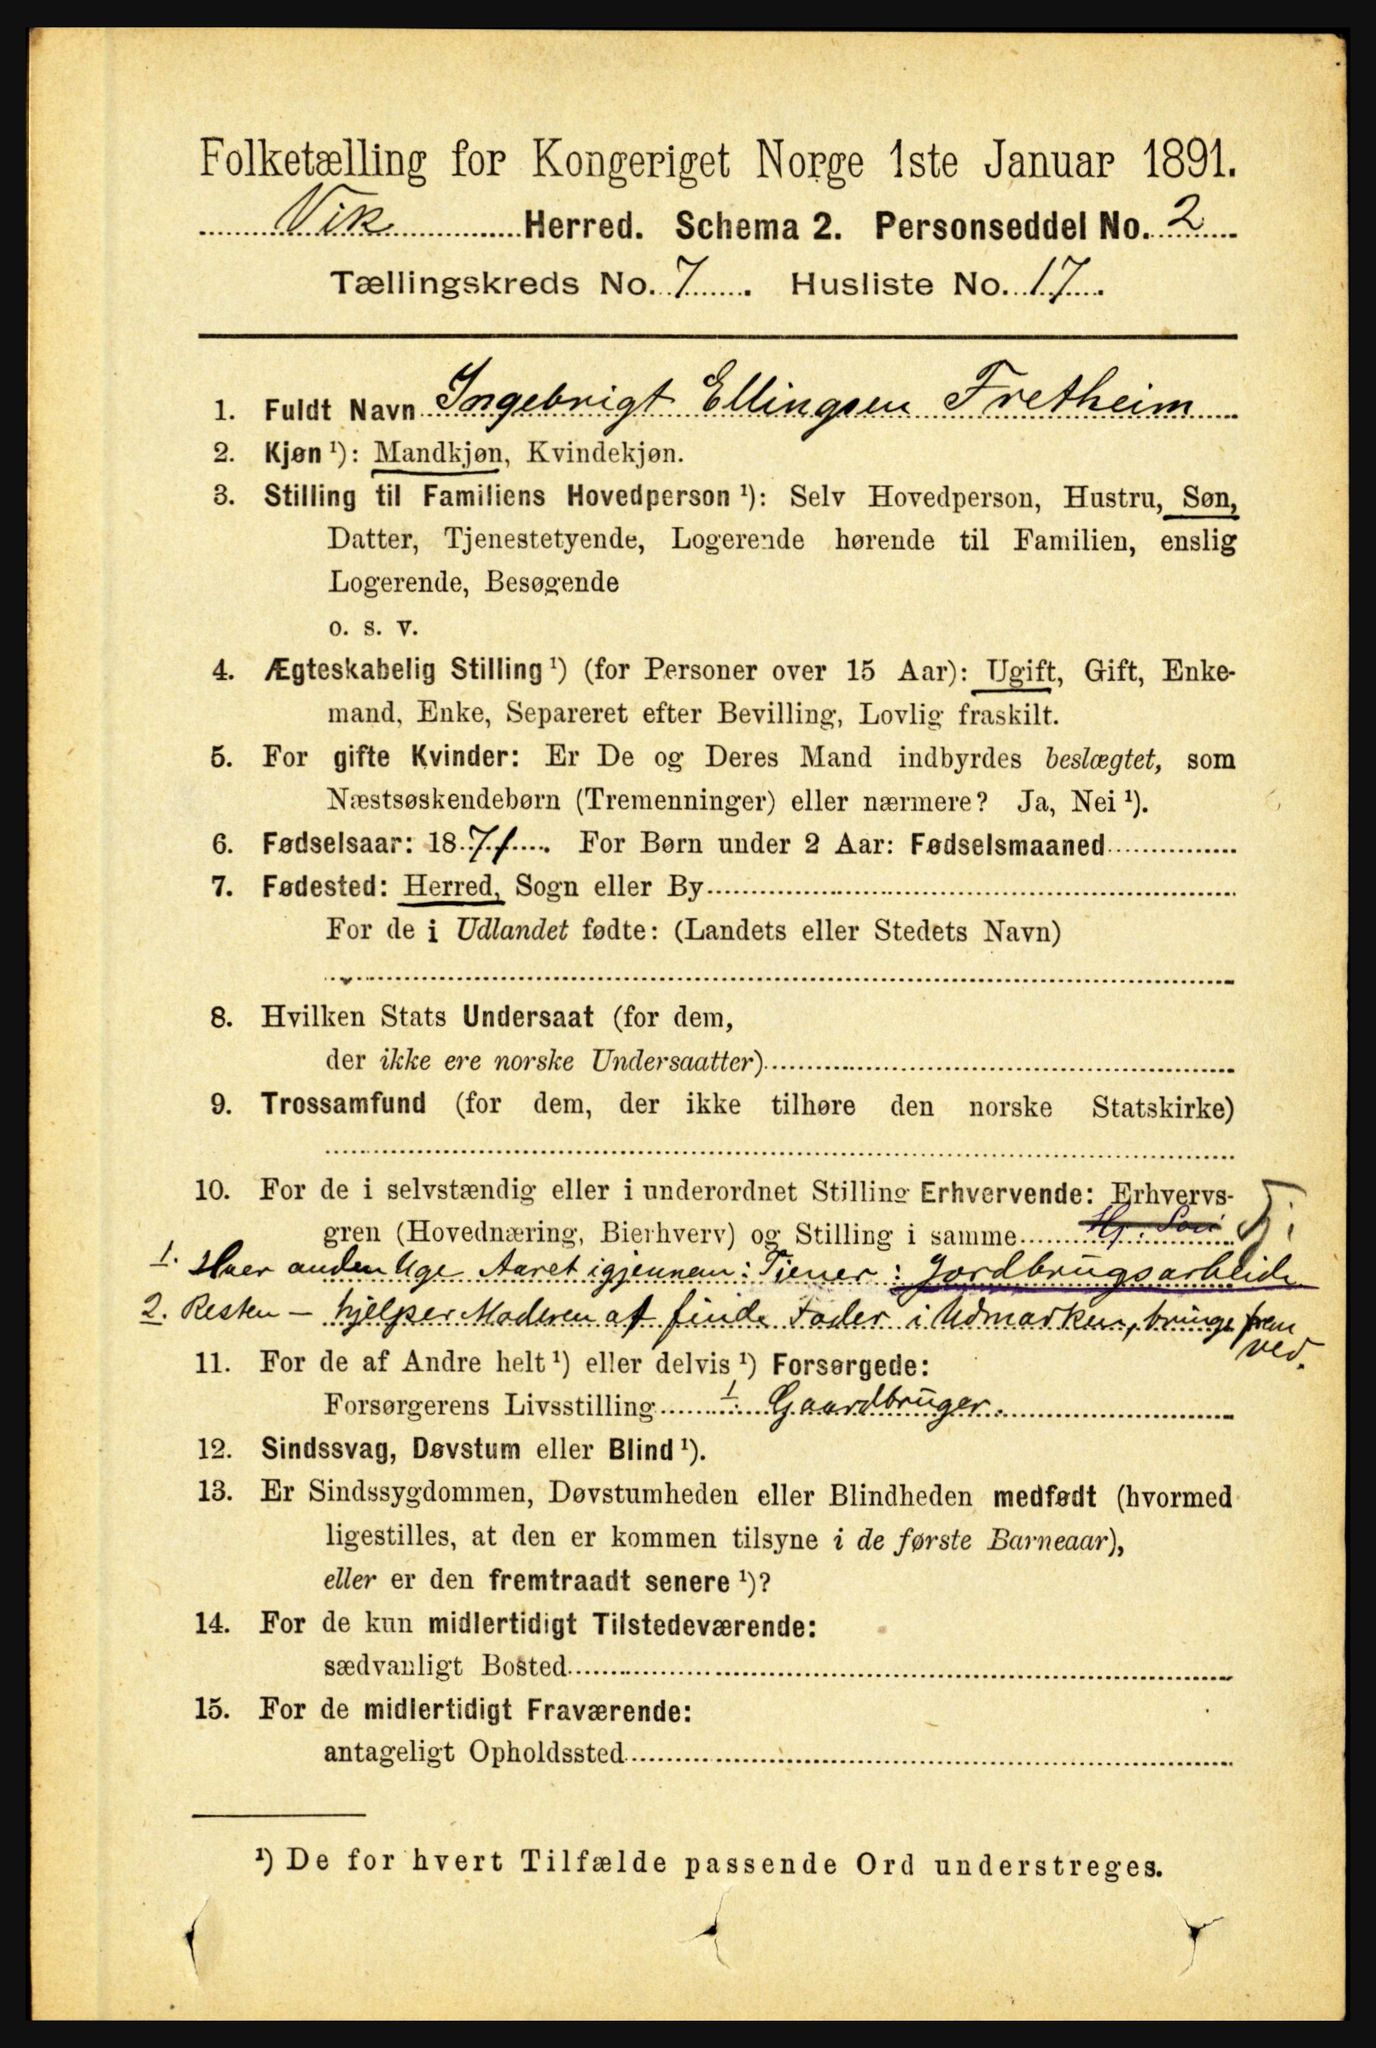 Folketælling for Kongeriget Norge 1ste Januar 1891.
Vik Herred. Schema 2. Personseddel No. 2
Tællingskreds No. 7. Husliste No. 17.
1. Fuldt Navn Ingebrigt Ellingsen Fretheim
2. Kjøn ¹): Mandkjøn, Kvindekjøn.
3. Stilling til Familiens Hovedperson ¹): Selv Hovedperson, Hustru, Søn,
Datter, Tjenestetyende, Logerende hørende til Familien, enslig
Logerende, Besøgende
o. s. v.
4. Ægteskabelig Stilling ¹) (for Personer over 15 Aar): Ugift, Gift, Enke-
mand, Enke, Separeret efter Bevilling, Lovlig fraskilt.
5. For gifte Kvinder: Er De og Deres Mand indbyrdes beslægtet, som
Næstsøskendebørn (Tremenninger) eller nærmere? Ja, Nei ¹).
6. Fødselsaar: 1871. For Børn under 2 Aar: Fødselsmaaned
7. Fødested: Herred, Sogn eller By
For de i Udlandet fødte: (Landets eller Stedets Navn)
8. Hvilken Stats Undersaat (for dem,
der ikke ere norske Undersaatter)
9. Trossamfund (for dem, der ikke tilhøre den norske Statskirke)
10. For de i selvstændig eller i underordnet Stilling Erhvervende: Erhvervs-
gren (Hovednæring, Bierhverv) og Stilling i samme
1. Hver anden Uge Aaret igjennem: Tjener: Jordbrugsarbeide
2. Resten – hjelper Moderen at finde Foder i Udmarken, bringe frem
ved.
11. For de af Andre helt ¹) eller delvis ¹) Forsørgede:
Forsørgerens Livsstilling 1. Gaardbruger.
12. Sindssvag, Døvstum eller Blind ¹).
13. Er Sindssygdommen, Døvstumheden eller Blindheden medfødt (hvormed
ligestilles, at den er kommen tilsyne i de første Barneaar),
eller er den fremtraadt senere ¹)?
14. For de kun midlertidigt Tilstedeværende:
sædvanligt Bosted
15. For de midlertidigt Fraværende:
antageligt Opholdssted
¹) De for hvert Tilfælde passende Ord understreges.